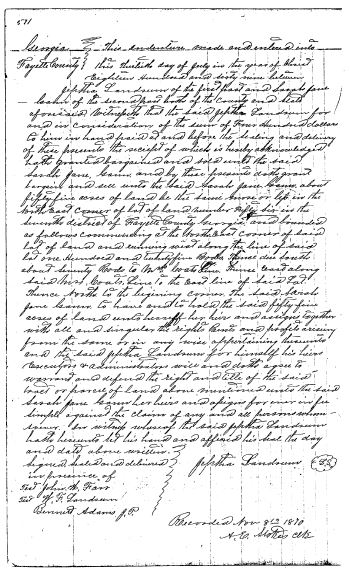 571
Georgia } This indenture made and entered into
Fayette County } this thirtieth day of July in the year of
Eighteen Hundred and sixty nine between
Jeptha Landrum of the first part and Sarah Jane
of the second part both of the County and State
aforesaid Witnesseth that the said Jeptha Landrum for
and in Consideration of the sum of Four Hundred dollars
to him in hand paid at and before the sealing and delivery
of these presents the receipt of which is hereby acknowledged
hath granted bargained and sold unto the said
Sarah Jane and by these presents doth grant
bargain and sell unto the said Sarah Jane about
fifty five acres of land be the same more or less in the
North East Corner of lot of land Number Fifty Six in the
Seventh district of Fayette County and bounded
as follows commencing at the North East Corner of said
lot of land and running west along the line of said
lot one Hundred and Rods thence due south
about seventy Rods to Line thence east along
said Line to the East line of said Lot
thence North to the beginning corner the said Sarah
Jane to have and to hold the said fifty five
acres of land unto herself her heirs and assigns together
with all and singular the rights and profits arising
from the same or in any wise appertaining thereunto
and the said Jeptha Landrum for himself his heirs
Executors & administrators will and doth agree to
warrant and defend the right and title of the said
tract or parcel of land above mentioned unto the said
Sarah Jane her heirs and assigns for ever in fee
simple against the claim of any and all persons whom-
soever. In witness whereof the said Jeptha Landrum
hath hereunto set his hand and affixed his seal the day
and date above written
Signed sealed and delivered } Jeptha Landrum
in presence of
John W. Farr
W. F. Landrum
Bennett Adams J.P.
Recorded Nov 8th 1870
Clk